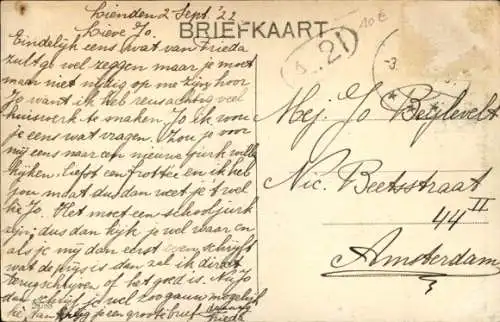 Lienden 2 Sept. '22
BRIEFKAART
Lieve Jo.
Eindelijk eens wat van Frieda
zult ge wel zeggen maar je moet
maar niet nijdig op me zijn, hoor
Jo want ik heb reusachtig veel
huiswerk te maken. Jo ik wou
je eens wat vragen. Zou je voor
mij eens naar een nieuwe jurk willen
kijken. Liefst een frottée en ik heb
jou maat dus dan weet je 't wel
hè Jo. Het moet een schooljurk
zijn, dus dan kijk je wel waar en
als je mij dan eerst even schrijft
wat de prijs is dan zal ik direct
terugschrijven of het goed is. Nu Jo
dan schrijf je wel zoo gauw mogelijk
hè, dan krijg je een groote brief
Frieda
10 €
21
3.
Mej. Jo Beijlevelt
Nic. Beetsstraat
44 II
Amsterdam